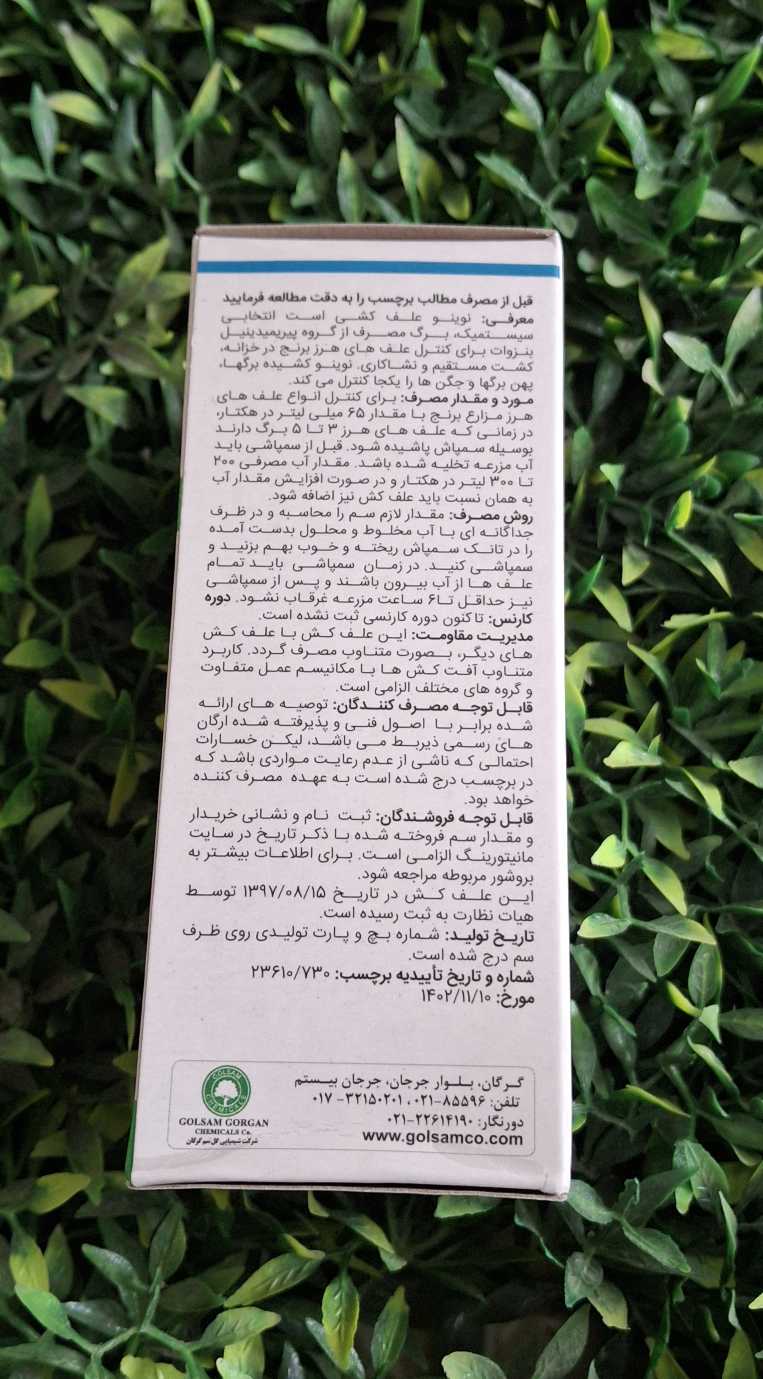 قبل از مصرف مطالب برچسب را به دقت مطالعه فرمایید
معرفی: نوینو علف کشی است انتخابی
سیستمیک، برگ مصرف از گروه پیریمیدینیل
بنزوات برای کنترل علف های هرز برنج در خزانه،
کشت مستقیم و نشاکاری. نوینو کشیده برگها،
پهن برگها و جگن ها را یکجا کنترل می کند.
مورد و مقدار مصرف: برای کنترل انواع علف های
هرز مزارع برنج با مقدار ۶۵ میلی لیتر در هکتار،
در زمانی که علف های هرز ۳ تا ۵ برگ دارند
بوسیله سمپاش پاشیده شود. قبل از سمپاشی باید
آب مزرعه تخلیه شده باشد. مقدار آب مصرفی ۲۰۰
تا ۳۰۰ لیتر در هکتار و در صورت افزایش مقدار آب
به همان نسبت باید علف کش نیز اضافه شود.
روش مصرف: مقدار لازم سم را محاسبه و در ظرف
جداگانه ای با آب مخلوط و محلول بدست آمده
را در تانک سمپاش ریخته و خوب بهم بزنید و
سمپاشی کنید. در زمان سمپاشی باید تمام
علف ها از آب بیرون باشند و پس از سمپاشی
نیز حداقل تا ۶ ساعت مزرعه غرقاب نشود. دوره
کارنس: تاکنون دوره کارنسی ثبت نشده است.
مدیریت مقاومت: این علف کش با علف کش
های دیگر، بصورت متناوب مصرف گردد. کاربرد
متناوب آفت کش ها با مکانیسم عمل متفاوت
و گروه های مختلف الزامی است.
قابل توجه مصرف کنندگان: توصیه های ارائه
شده برابر با اصول فنی و پذیرفته شده ارگان
های رسمی ذیربط می باشد، لیکن خسارات
احتمالی که ناشی از عدم رعایت مواردی باشد که
در برچسب درج شده است به عهده مصرف کننده
خواهد بود.
قابل توجه فروشندگان: ثبت نام و نشانی خریدار
و مقدار سم فروخته شده با ذکر تاریخ در سایت
مانیتورینگ الزامی است. برای اطلاعات بیشتر به
بروشور مربوطه مراجعه شود.
این علف کش در تاریخ ۱۳۹۷/۰۸/۱۵ توسط
هیات نظارت به ثبت رسیده است.
تاریخ تولید: شماره بچ و پارت تولیدی روی ظرف
سم درج شده است.
شماره و تاریخ تأییدیه برچسب: ۲۳۶۱۰/۷۳۰
مورخ: ۱۴۰۲/۱۱/۱۰
گرگان، بلوار جرجان، جرجان بیستم
تلفن: ۸۵۵۹۶-۰۲۱، ۳۲۱۵۰۲۰۱- ۰۱۷
دورنگار: ۲۲۶۱۴۱۹۰-۰۲۱
www.golsamco.com
GOLSAM
CHEMICALS
GOLSAM GORGAN
CHEMICALS Co.
شرکت شیمیایی گل سم گرگان